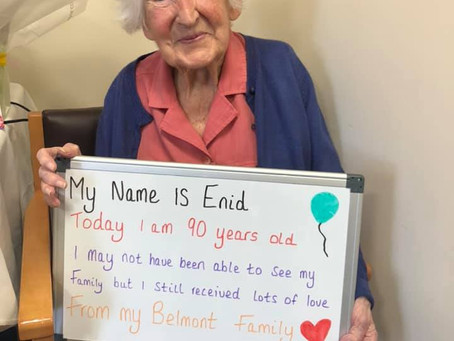 My Name Is Enid
Today I am 90 years old
I may not have been able to see my
Family but I still received lots of love
From my Belmont Family